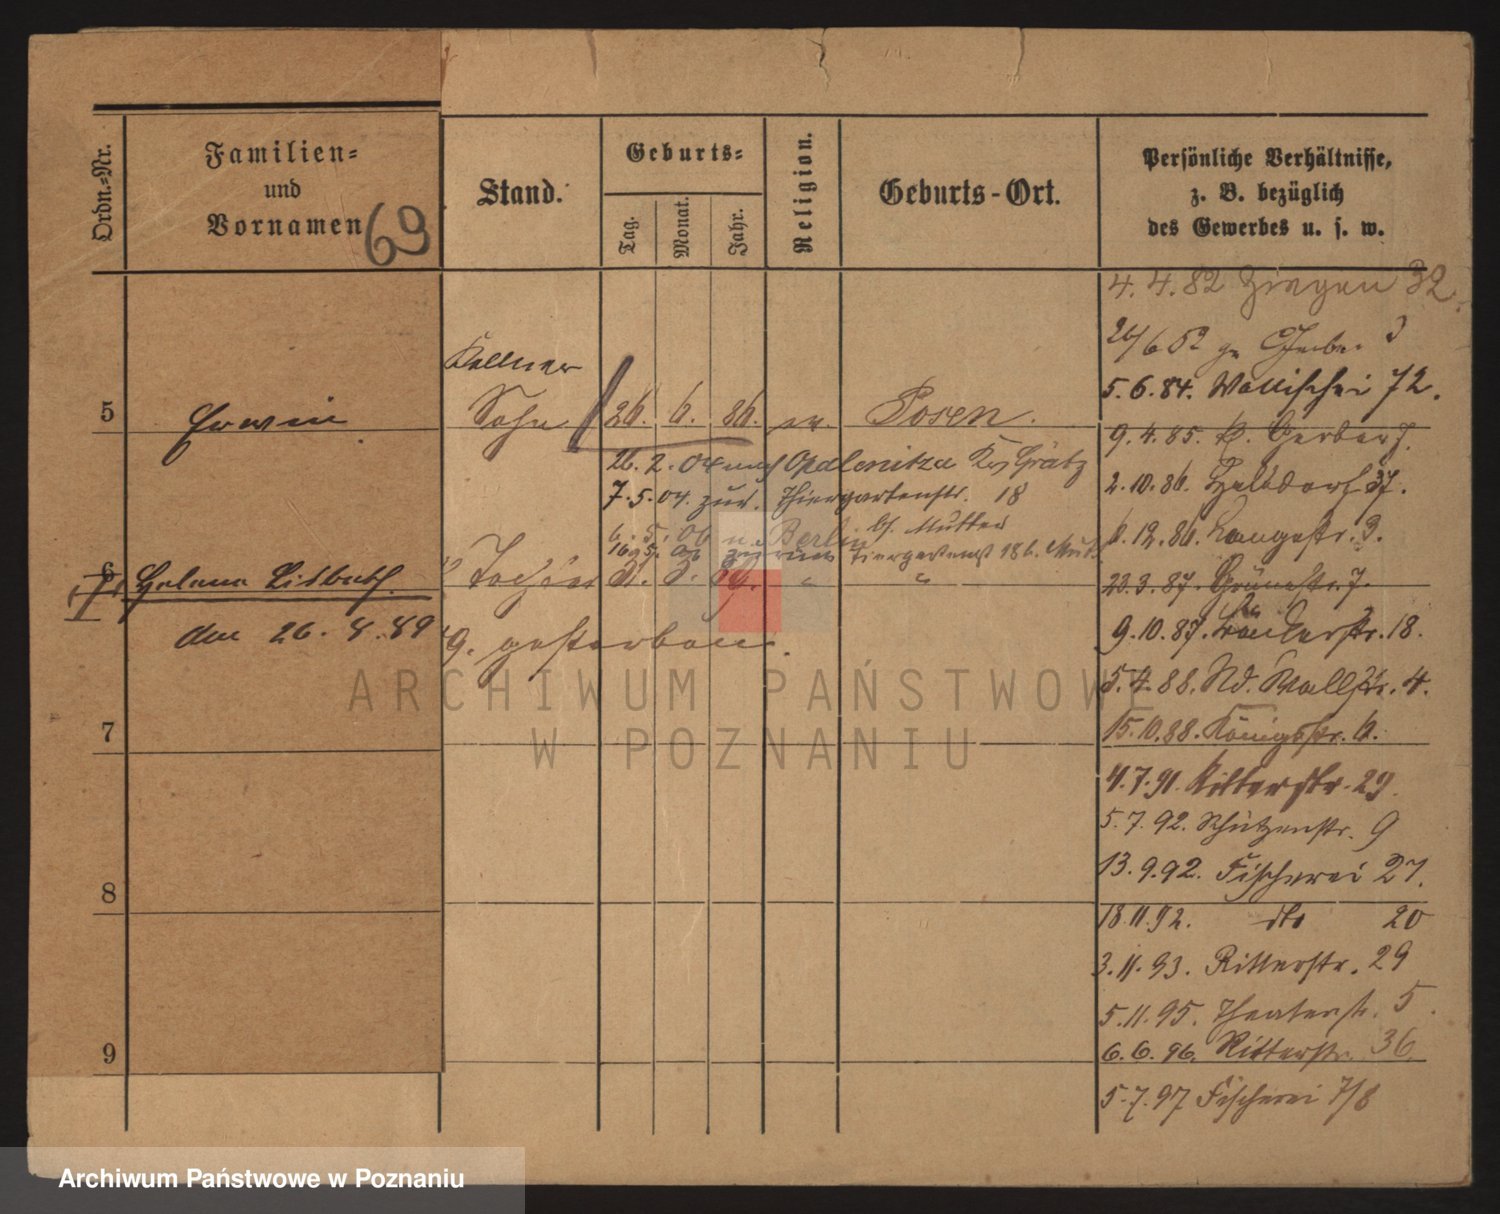 Ordn.-Nr.
Familien-
und
Vornamen
69
Stand.
Geburts-
Tag.
Monat.
Jahr.
Religion.
Geburts-Ort.
Persönliche Verhältnisse,
z. B. bezüglich
des Gewerbes u. s. w.
4. 4. 82 Ziegen 32
26/6 82 Gerber 3
5. 6. 84. Wallischei 72.
Kellner
5 Erwin Sohn 26. 6. 86. ev. Posen.
9. 4. 85. Gerber
26. 2. 04 nach Opalenitza Krs Grätz
2. 10. 86. Halbdorf 37.
7. 5. 04. zur. Thiergartenstr. 18
6. 5. 06 n. Berlin bs. Mutter
6. 12. 86. Langestr. 3.
16. 5. 06 zurück Tiergartenst 18 b. Mutt.
6 Helene Lisbeth Tochter
22. 3. 87. Grünestr. 7.
den 26. 8. 89 gestorben.
9. 10. 87. 18.
5. 4. 88. Nd. Wallstr. 4.
7
15. 10. 88. Königsstr. 6.
4. 7. 91. Ritterstr. 29.
5. 7. 92. Schützenstr. 9
13. 9. 92. Fischerei 27.
8
18. 11. 92. dto 20
3. 11. 93. Ritterstr. 29
5. 11. 95. Theaterstr. 5.
9
6. 6. 96. Ritterstr. 36.
5. 7. 97 Fischerei 7/8
ARCHIWUM PAŃSTWOWE
W POZNANIU
Archiwum Państwowe w Poznaniu